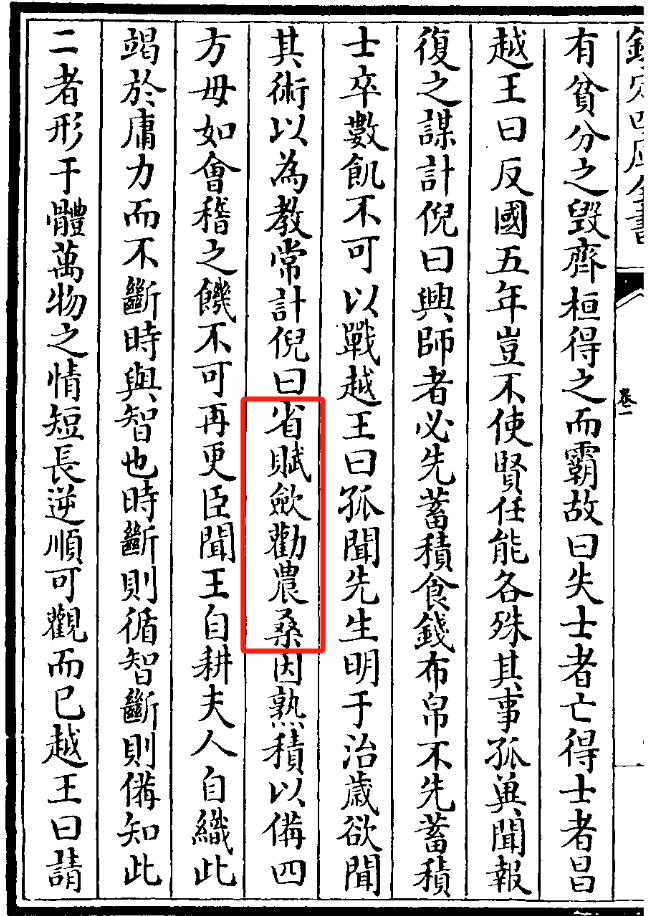 欽定四庫全書
卷一
有貧分之毀齊桓得之而霸故曰失士者亡得士者昌
越王曰反國五年豈不使賢任能各殊其事孤冀聞報
復之謀計倪曰興師者必先蓄積食錢布帛不先蓄積
士卒數飢不可以戰越王曰孤聞先生明于治歲欲聞
其術以為教常計倪曰省賦斂勸農桑因熟積以備四
方毋如會稽之饑不可再更臣聞王自耕夫人自織此
竭於庸力而不斷時與智也時斷則循智斷則備知此
二者形于體萬物之情短長逆順可觀而已越王曰請